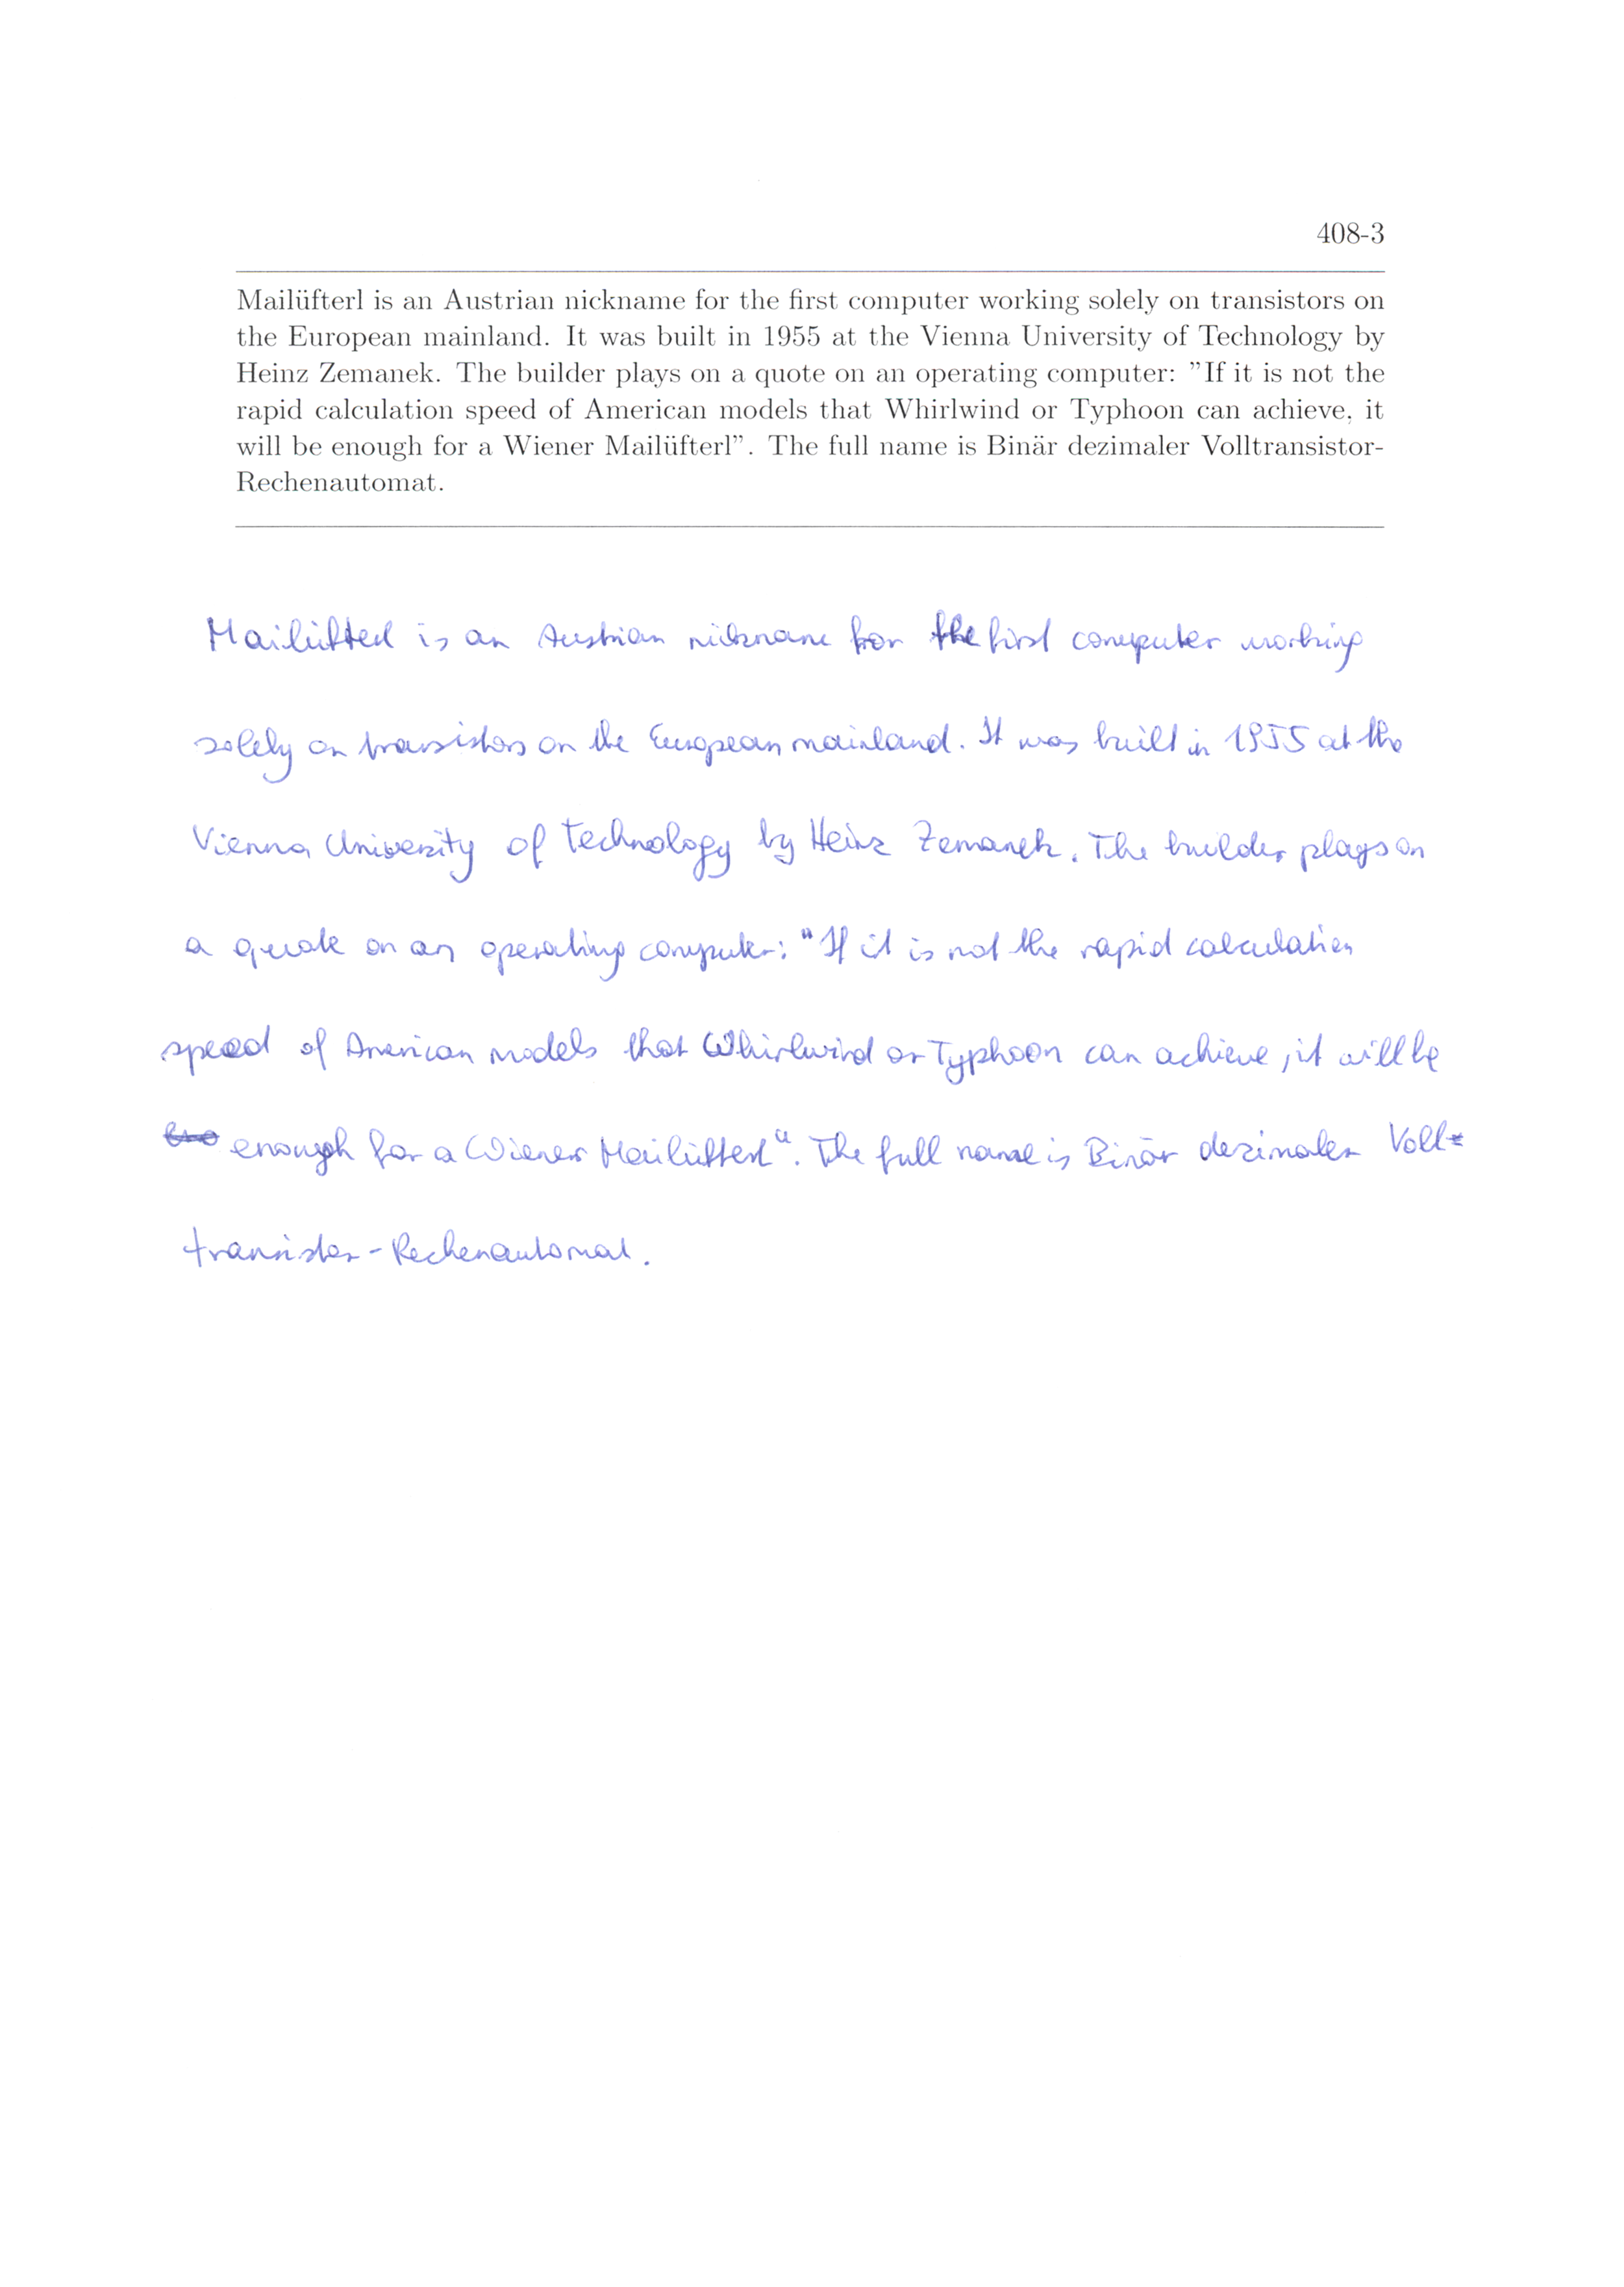 408-3
Mailüfterl is an Austrian nickname for the first computer working solely on transistors on
the European mainland. It was built in 1955 at the Vienna University of Technology by
Heinz Zemanek. The builder plays on a quote on an operating computer: "If it is not the
rapid calculation speed of American models that Whirlwind or Typhoon can achieve, it
will be enough for a Wiener Mailüfterl". The full name is Binär dezimaler Volltransistor-
Rechenautomat.
Mailüfterl is an Austrian nickname for the first computer working
solely on transistors on the European mainland. It was built in 1955 at the
Vienna University of Technology by Heinz Zemanek. The builder plays on
a quote on an operating computer: "If it is not the rapid calculation
speed of American models that Whirlwind or Typhoon can achieve, it will be
enough for a Wiener Mailüfterl". The full name is Binär dezimaler Voll-
transistor-Rechenautomat.